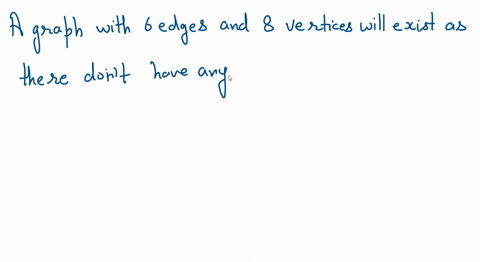 A graph with 6 edges and 8 vertices will exist as
there don't have any